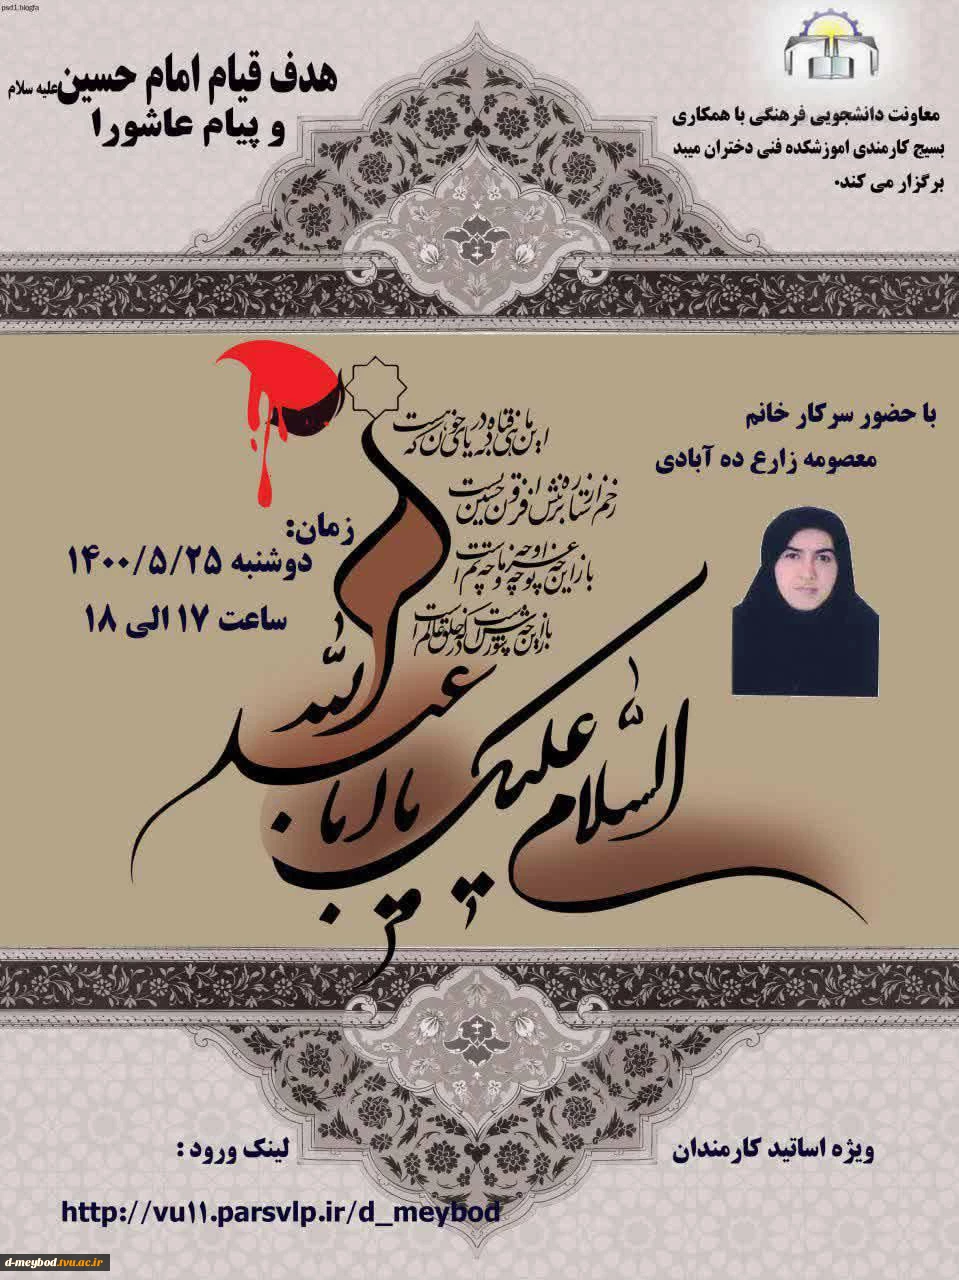 psd1.blogfa
هدف قیام امام حسین علیه سلام
و پیام عاشورا
معاونت دانشجویی فرهنگی با همکاری
بسیج کارمندی اموزشکده فنی دختران میبد
برگزار می کند.
با حضور سرکار خانم
معصومه زارع ده آبادی
این ماهی فتاده به دریای خون که هست
زخم از ستاره بر تنش افزون حسین تست
باز این چه نوحه و چه عزا و چه ماتم است
باز این چه شورش است که در خلق عالم است
زمان:
دوشنبه ۱۴۰۰/۵/۲۵
ساعت ۱۷ الی ۱۸
السلام علیک یا اباعبدالله
ویژه اساتید کارمندان
لینک ورود :
http://vu11.parsvlp.ir/d_meybod
d-meybod.tvu.ac.ir